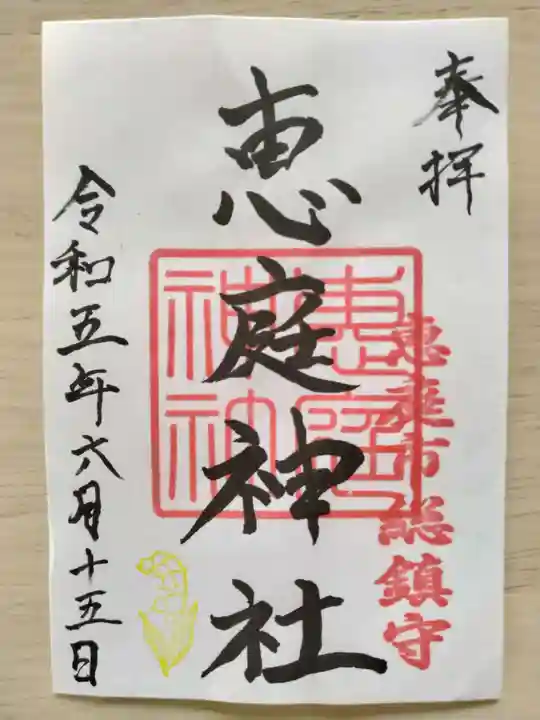 奉拝
恵庭市総鎮守
恵庭神社
恵庭神社
令和五年六月十五日